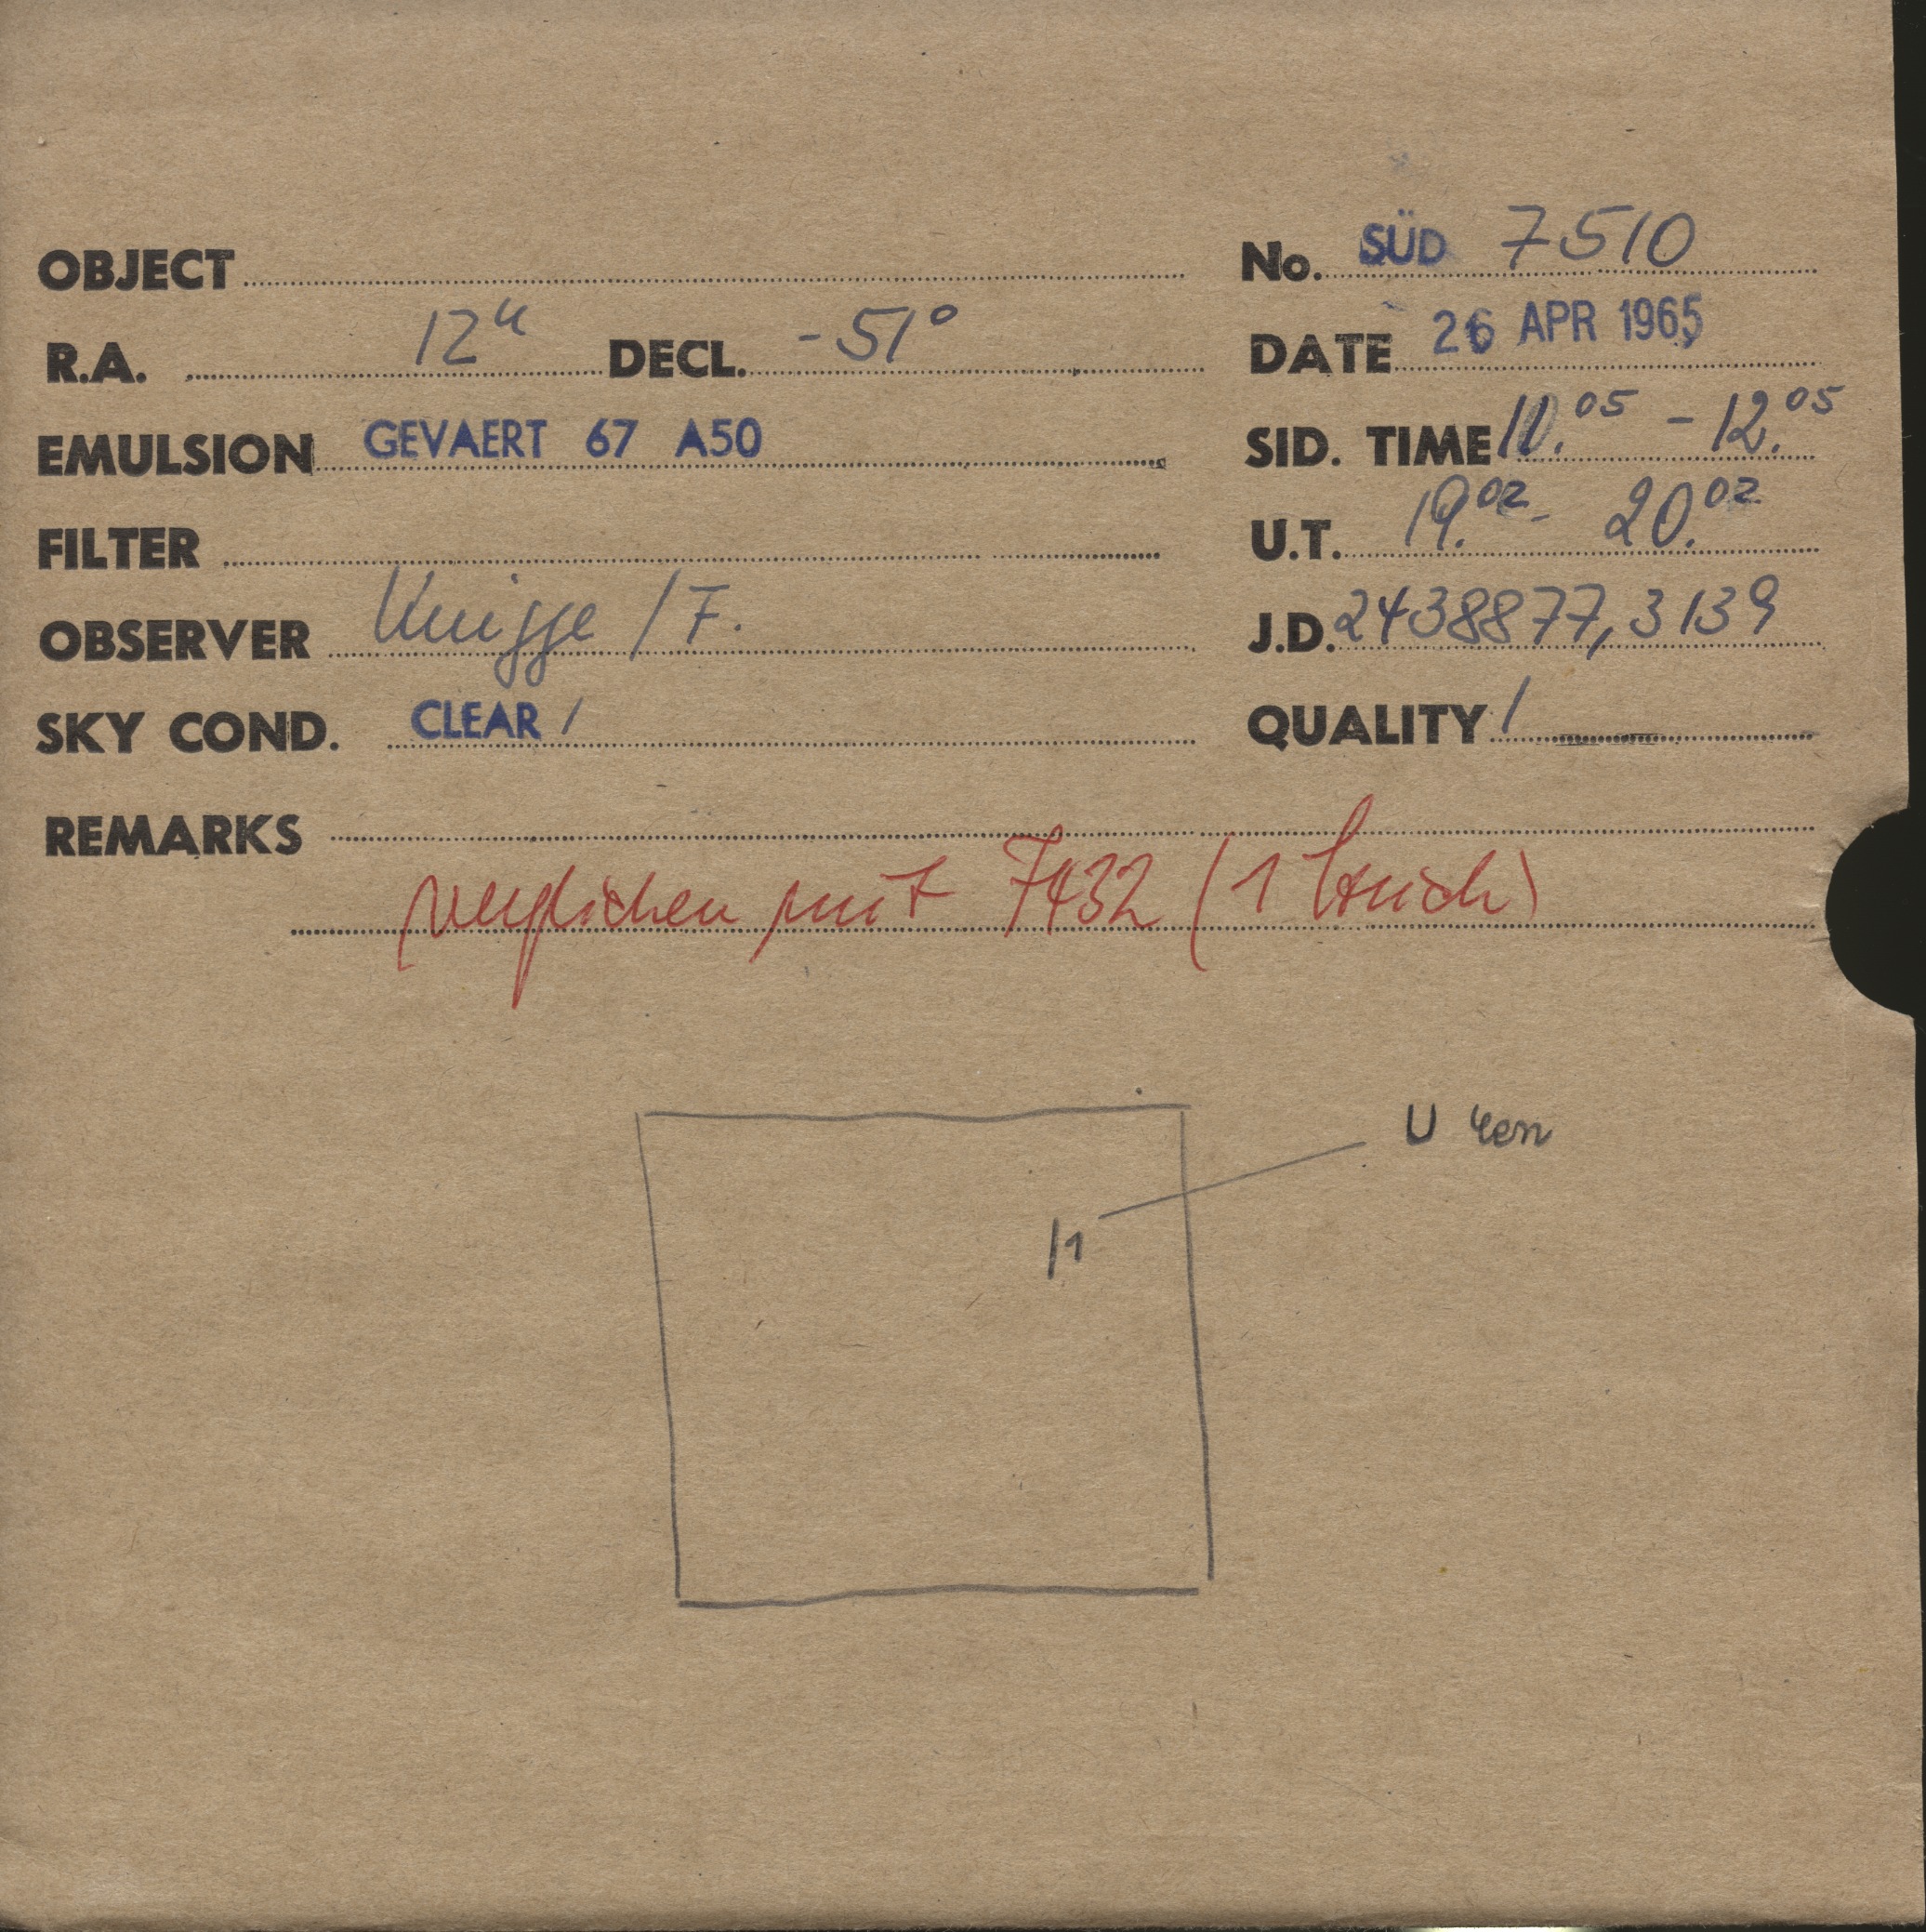 OBJECT No. SÜD 7510
R.A. 12h DECL. -51°
DATE 26 APR 1965
EMULSION GEVAERT 67 A50
SID. TIME 11.05 - 12.05
FILTER
U.T. 19.02 - 20.02
OBSERVER Knigge / F.
J.D. 2438877,3139
SKY COND. CLEAR /
QUALITY 1
REMARKS
verglichen mit 7432 (1 Strich)
U Cen
1